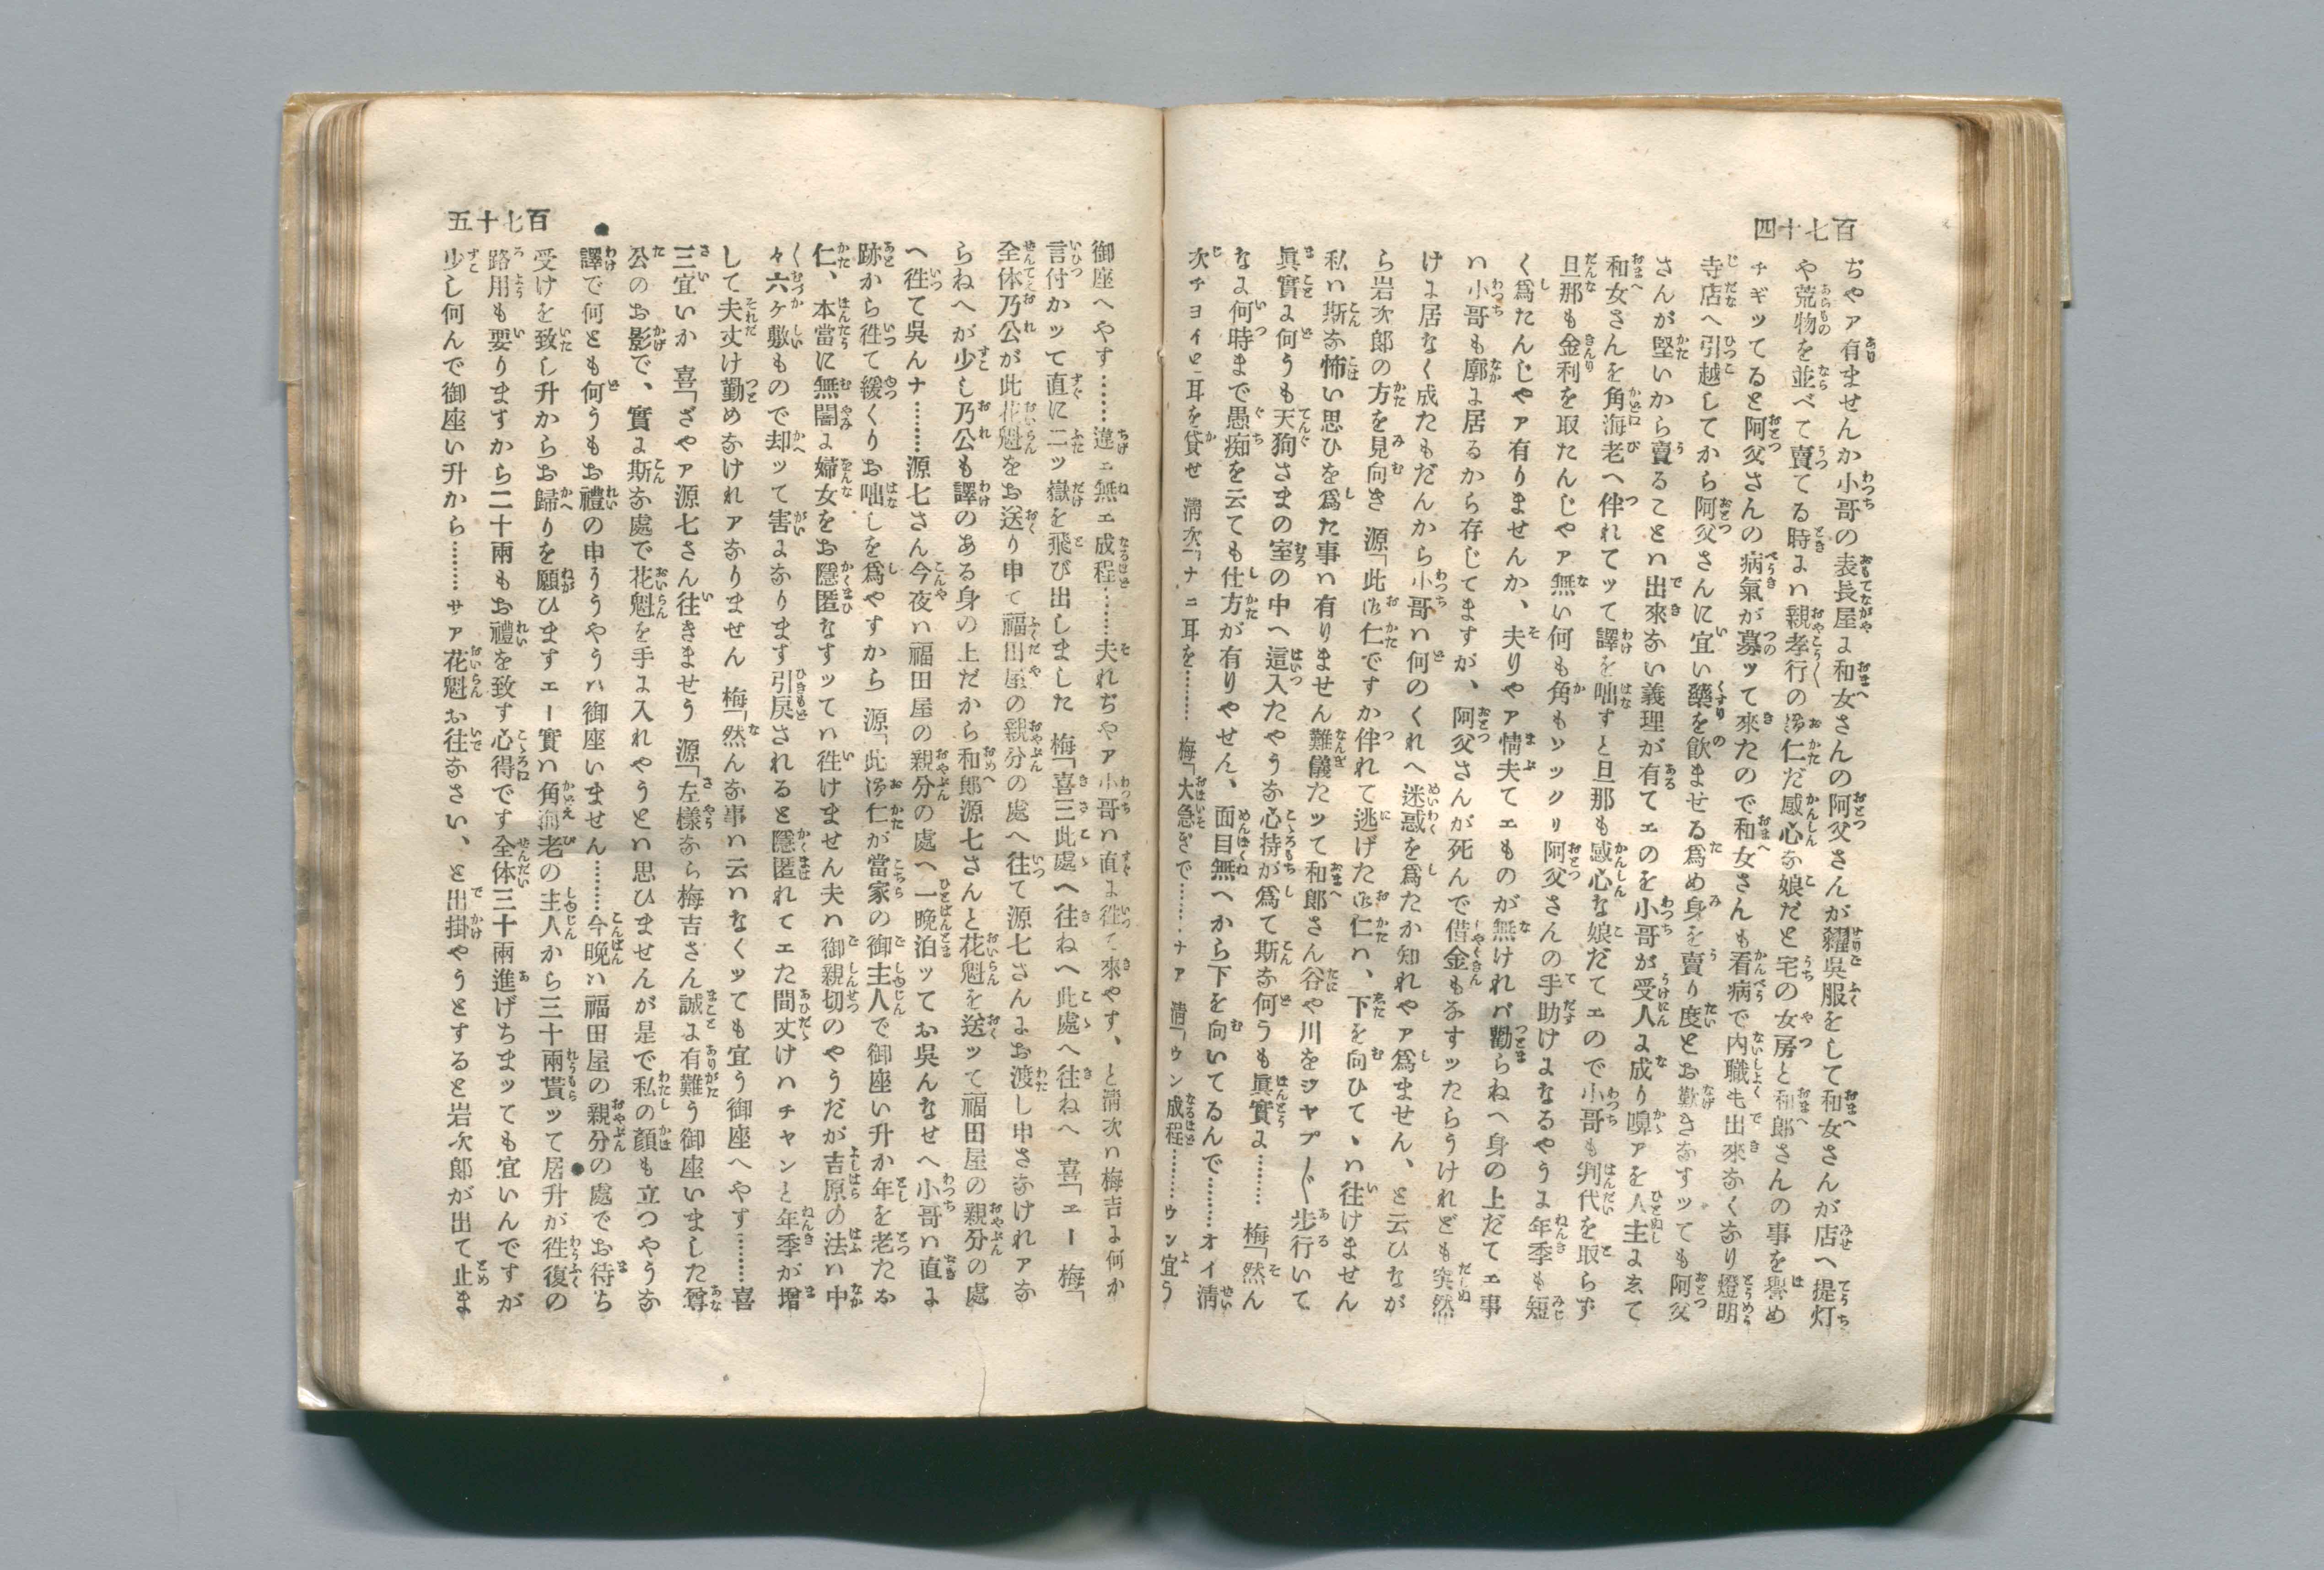 百七十四
ぢやア有ませんか小哥の表長屋に和女さんの阿父さんが糶呉服をして和女さんが店へ提灯
や荒物を並べて賣てる時にハ親孝行のお仁だ感心な娘だと宅の女房と和郎さんの事を譽め
チギツてると阿父さんの病氣が募ッて來たので和女さんも看病で内職も出來なくなり燈明
寺店へ引越してから阿父さんに宜い藥を飮ませる爲め身を賣り度とお歎きなすッても阿父
さんが堅いから賣ることハ出來ない義理が有るてエのを小哥が受人に成り嚊アを人主にゑて
和女さんを角海老へ伴れてッて譯を咄すと旦那も感心な娘だてエので小哥も判代を取らず
旦那も金利を取たんじやア無い何も角もソックリ阿父さんの手助けになるやうに年季も短
く爲たんじやア有りませんか、夫りやア情夫てエものが無けれバ勤らねへ身の上だてエ事
ハ小哥も廓に居るから存じてますが、阿父さんが死んで借金もなすッたらうけれども突然
けに居なく成たもだんから小哥ハ何のくれへ迷惑を爲たか知れやア爲ません、と云ひなが
ら岩次郎の方を見向き 源「此お仁ですか伴れて逃げたお仁ハ、下を向ひてゝハ往けません
私ハ斯な怖い思ひを爲た事ハ有りません難儀たッて和郎さん谷や川をジャブ〳〵歩行いて
眞實に何うも天狗さまの室の中へ這入たやうな心持が爲て斯な何うも眞實に……… 梅「然ん
なに何時まで愚痴を云ても仕方が有りやせん、面目無へから下を向いてるんで………オイ淸
次チヨイと耳を貸せ 淸次「ナニ耳を……… 梅「大急ぎで………ナア 淸「ウン成程………ウン宜う
百七十五
御座へやす………違エ無エ成程………夫れぢやア小哥ハ直に徃て來やす、と淸次ハ梅吉に何か
言付かッて直に二ッ嶽を飛び出しました 梅「喜三此處へ往ねへ此處へ往ねへ 喜「エー 梅「
全体乃公が此花魁をお送り申て福田屋の親分の處へ往て源七さんにお渡し申さなけれアな
らねへが少し乃公も譯のある身の上だから和郎源七さんと花魁を送ッて福田屋の親分の處
へ徃て呉んナ………源七さん今夜ハ福田屋の親分の處へ一晩泊ッてお呉んなせへ小哥ハ直に
跡から徃て緩くりお咄しを爲やすから 源「此お仁が當家の御主人で御座い升か年を老たお
仁、本當に無闇に婦女をお隱匿なすッてハ徃けません夫ハ御親切のやうだが吉原の法ハ中
々六ヶ敷もので却ッて害になります引戻されると隱匿れてエた間丈けハチャンと年季が增
して夫丈け勤めなけれアなりません 梅「然んな事ハ云ハなくッても宜う御座へやす………喜
三宜いか 喜「ざやア源七さん往きませう 源「左樣なら梅吉さん誠に有難う御座いました尊
公のお影で、實に斯な處で花魁を手に入れやうとハ思ひませんが是で私の顏も立つやうな
譯で何とも何うもお禮の申うやうハ御座いません………今晩ハ福田屋の親分の處でお待ち
受けを致し升からお歸りを願ひますエー實ハ角海老の主人から三十兩貰ッて居升が徃復の
路用も要りますから二十兩もお禮を致す心得です全体三十兩進げちまッても宜いんですが
少し何んで御座い升から………サア花魁お往なさい、と出掛やうとすると岩次郎が出て止ま